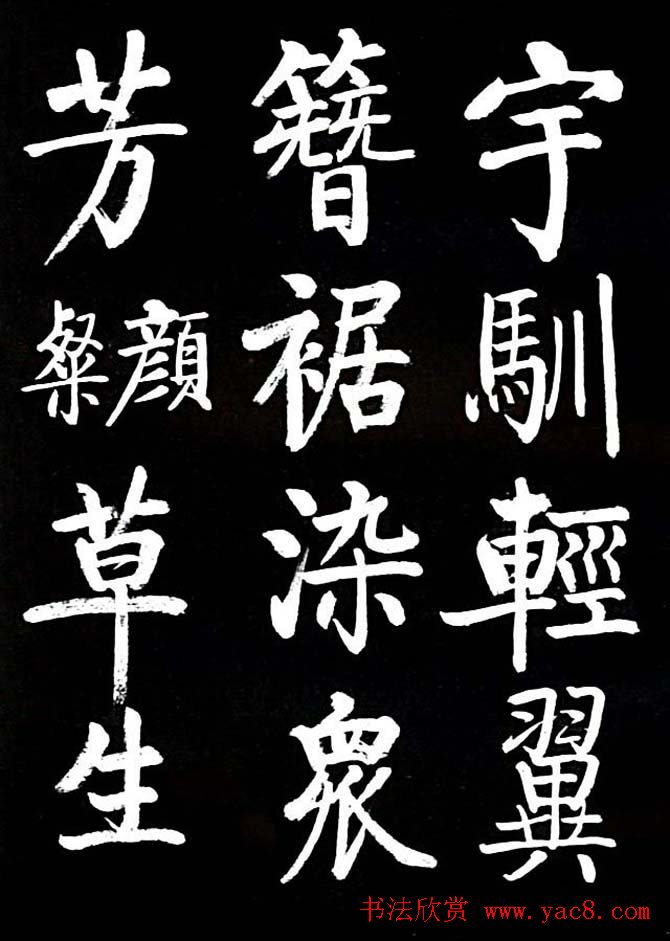 宇馴輕翼
簪裾染眾
芳顏粲草生
书法欣赏 www.yac8.com